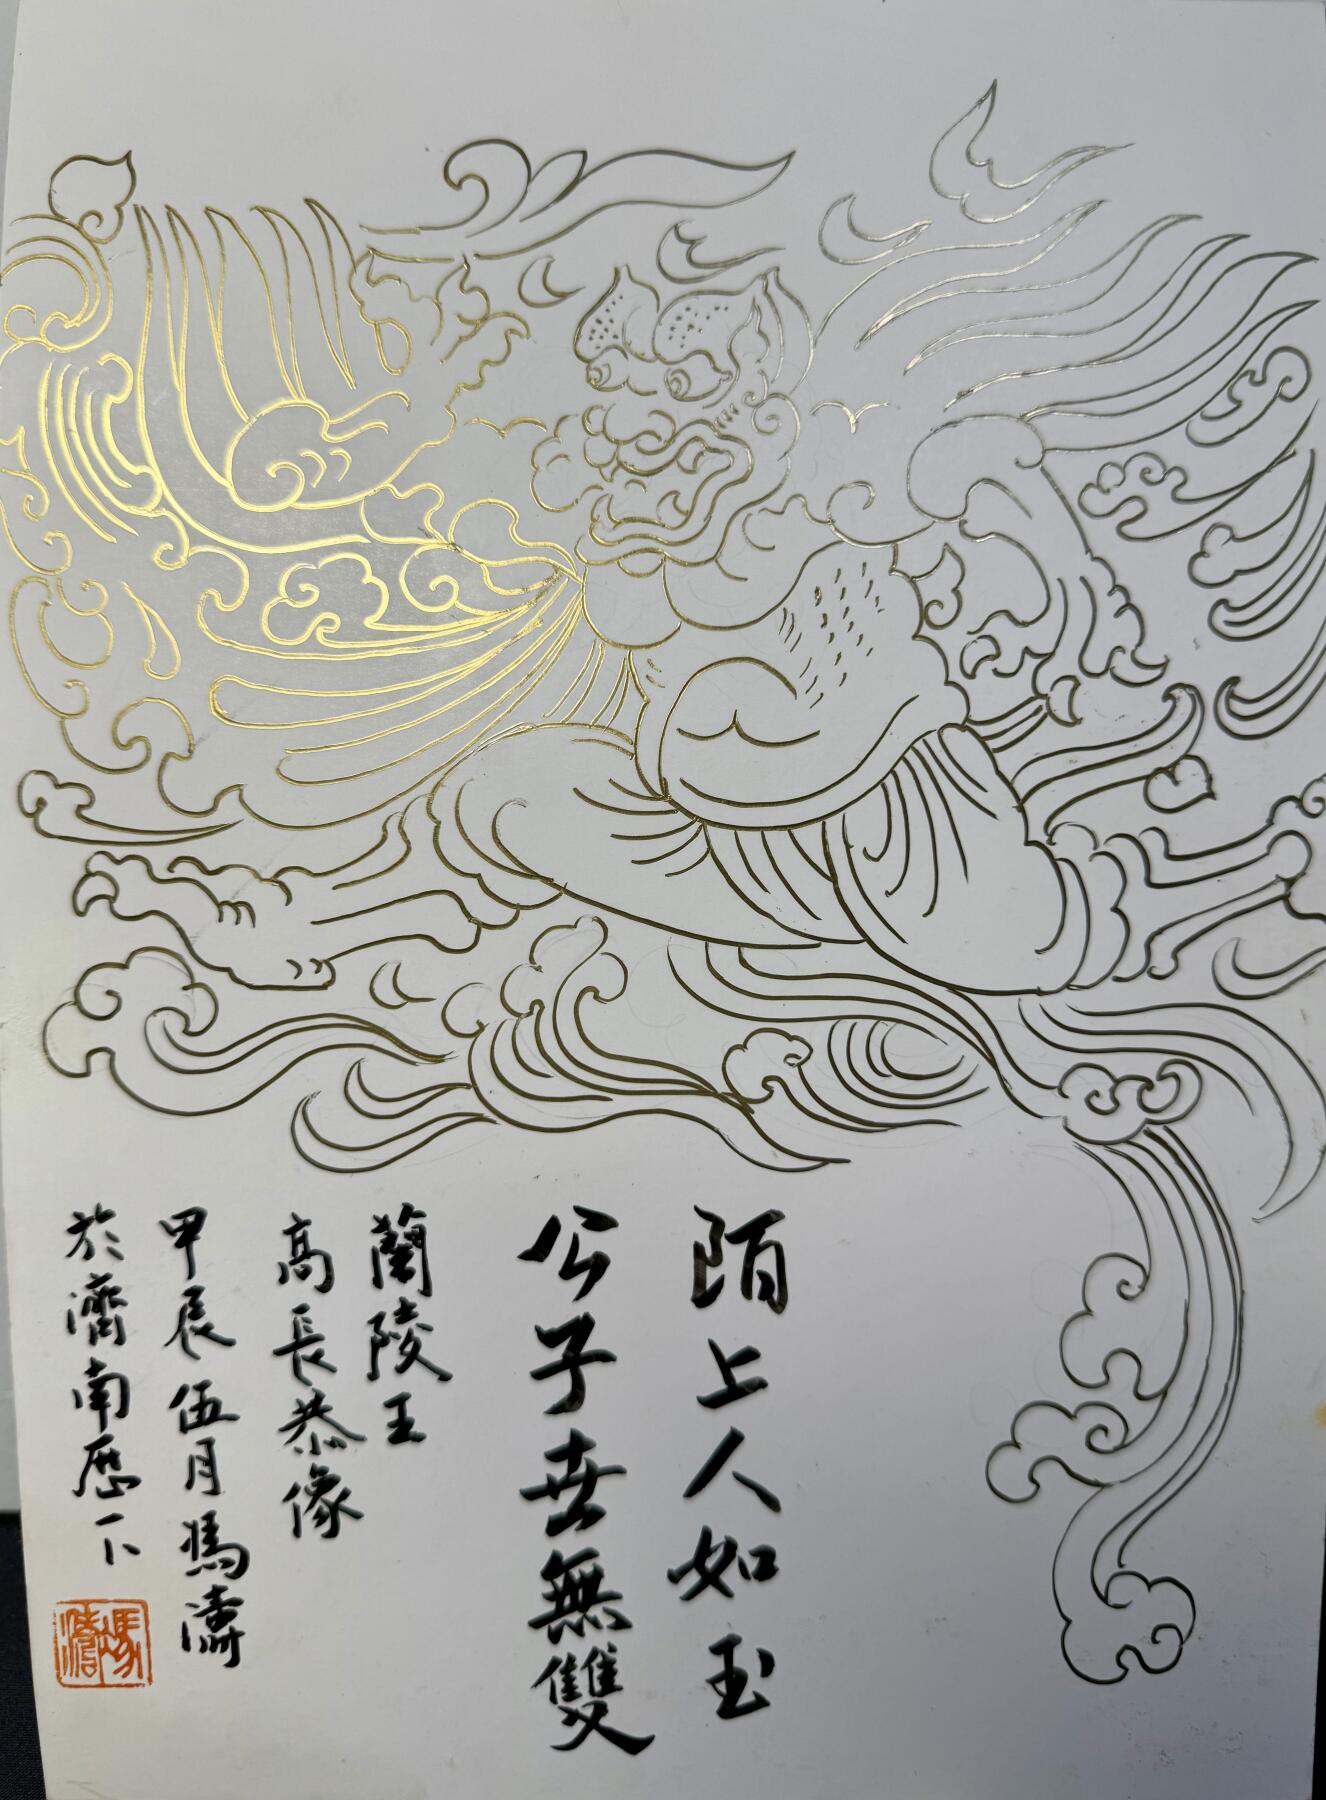 陌上人如玉
公子世無雙
蘭陵王
高長恭像
甲辰伍月馮濤
於濟南歷下
馮濤